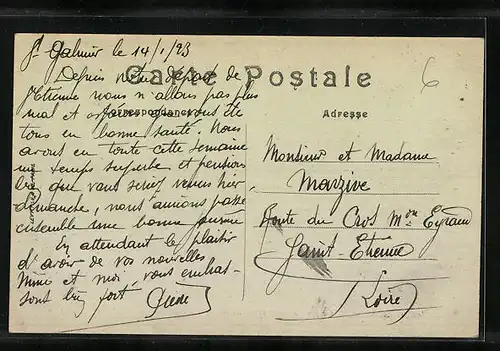 St Galmier le 14/1/23
Carte Postale
Correspondance
Adresse
Depuis notre départ de
St Etienne nous n'allons pas plus
mal et espérons que vous êtes
tous en bonne santé. Nous
avons eu toute cette semaine
un temps superbe et pensions
bien que vous seriez venus hier
dimanche, nous aurions passé
ensemble une bonne journée
En attendant le plaisir
d'avoir de vos nouvelles
Mimi et moi, vous embras-
sons bien fort
Monsieur et Madame
Marzive
Route du Cros Mon Eyraud
Saint-Etienne
Loire
6